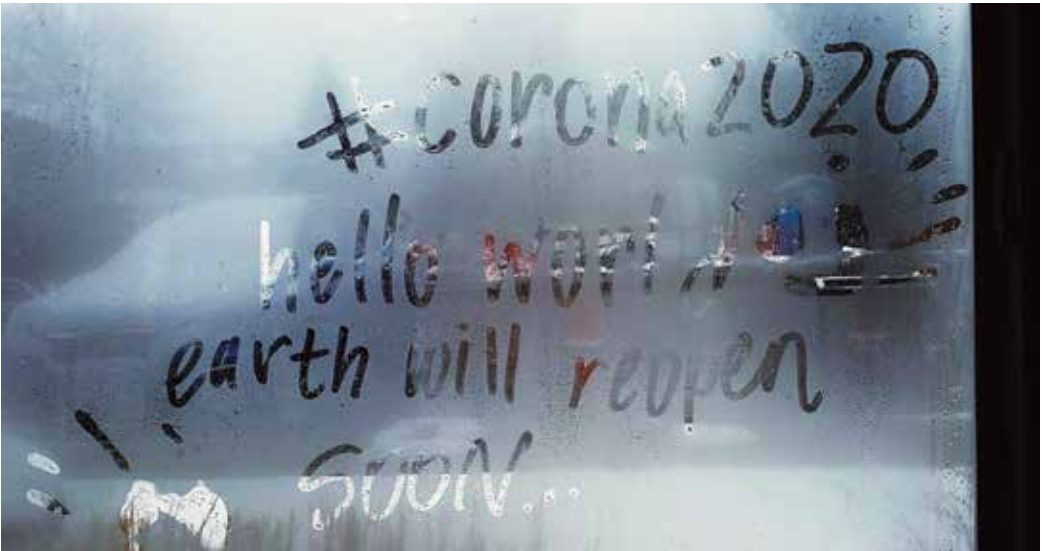 #corona2020
hello world
earth will reopen
SOON...